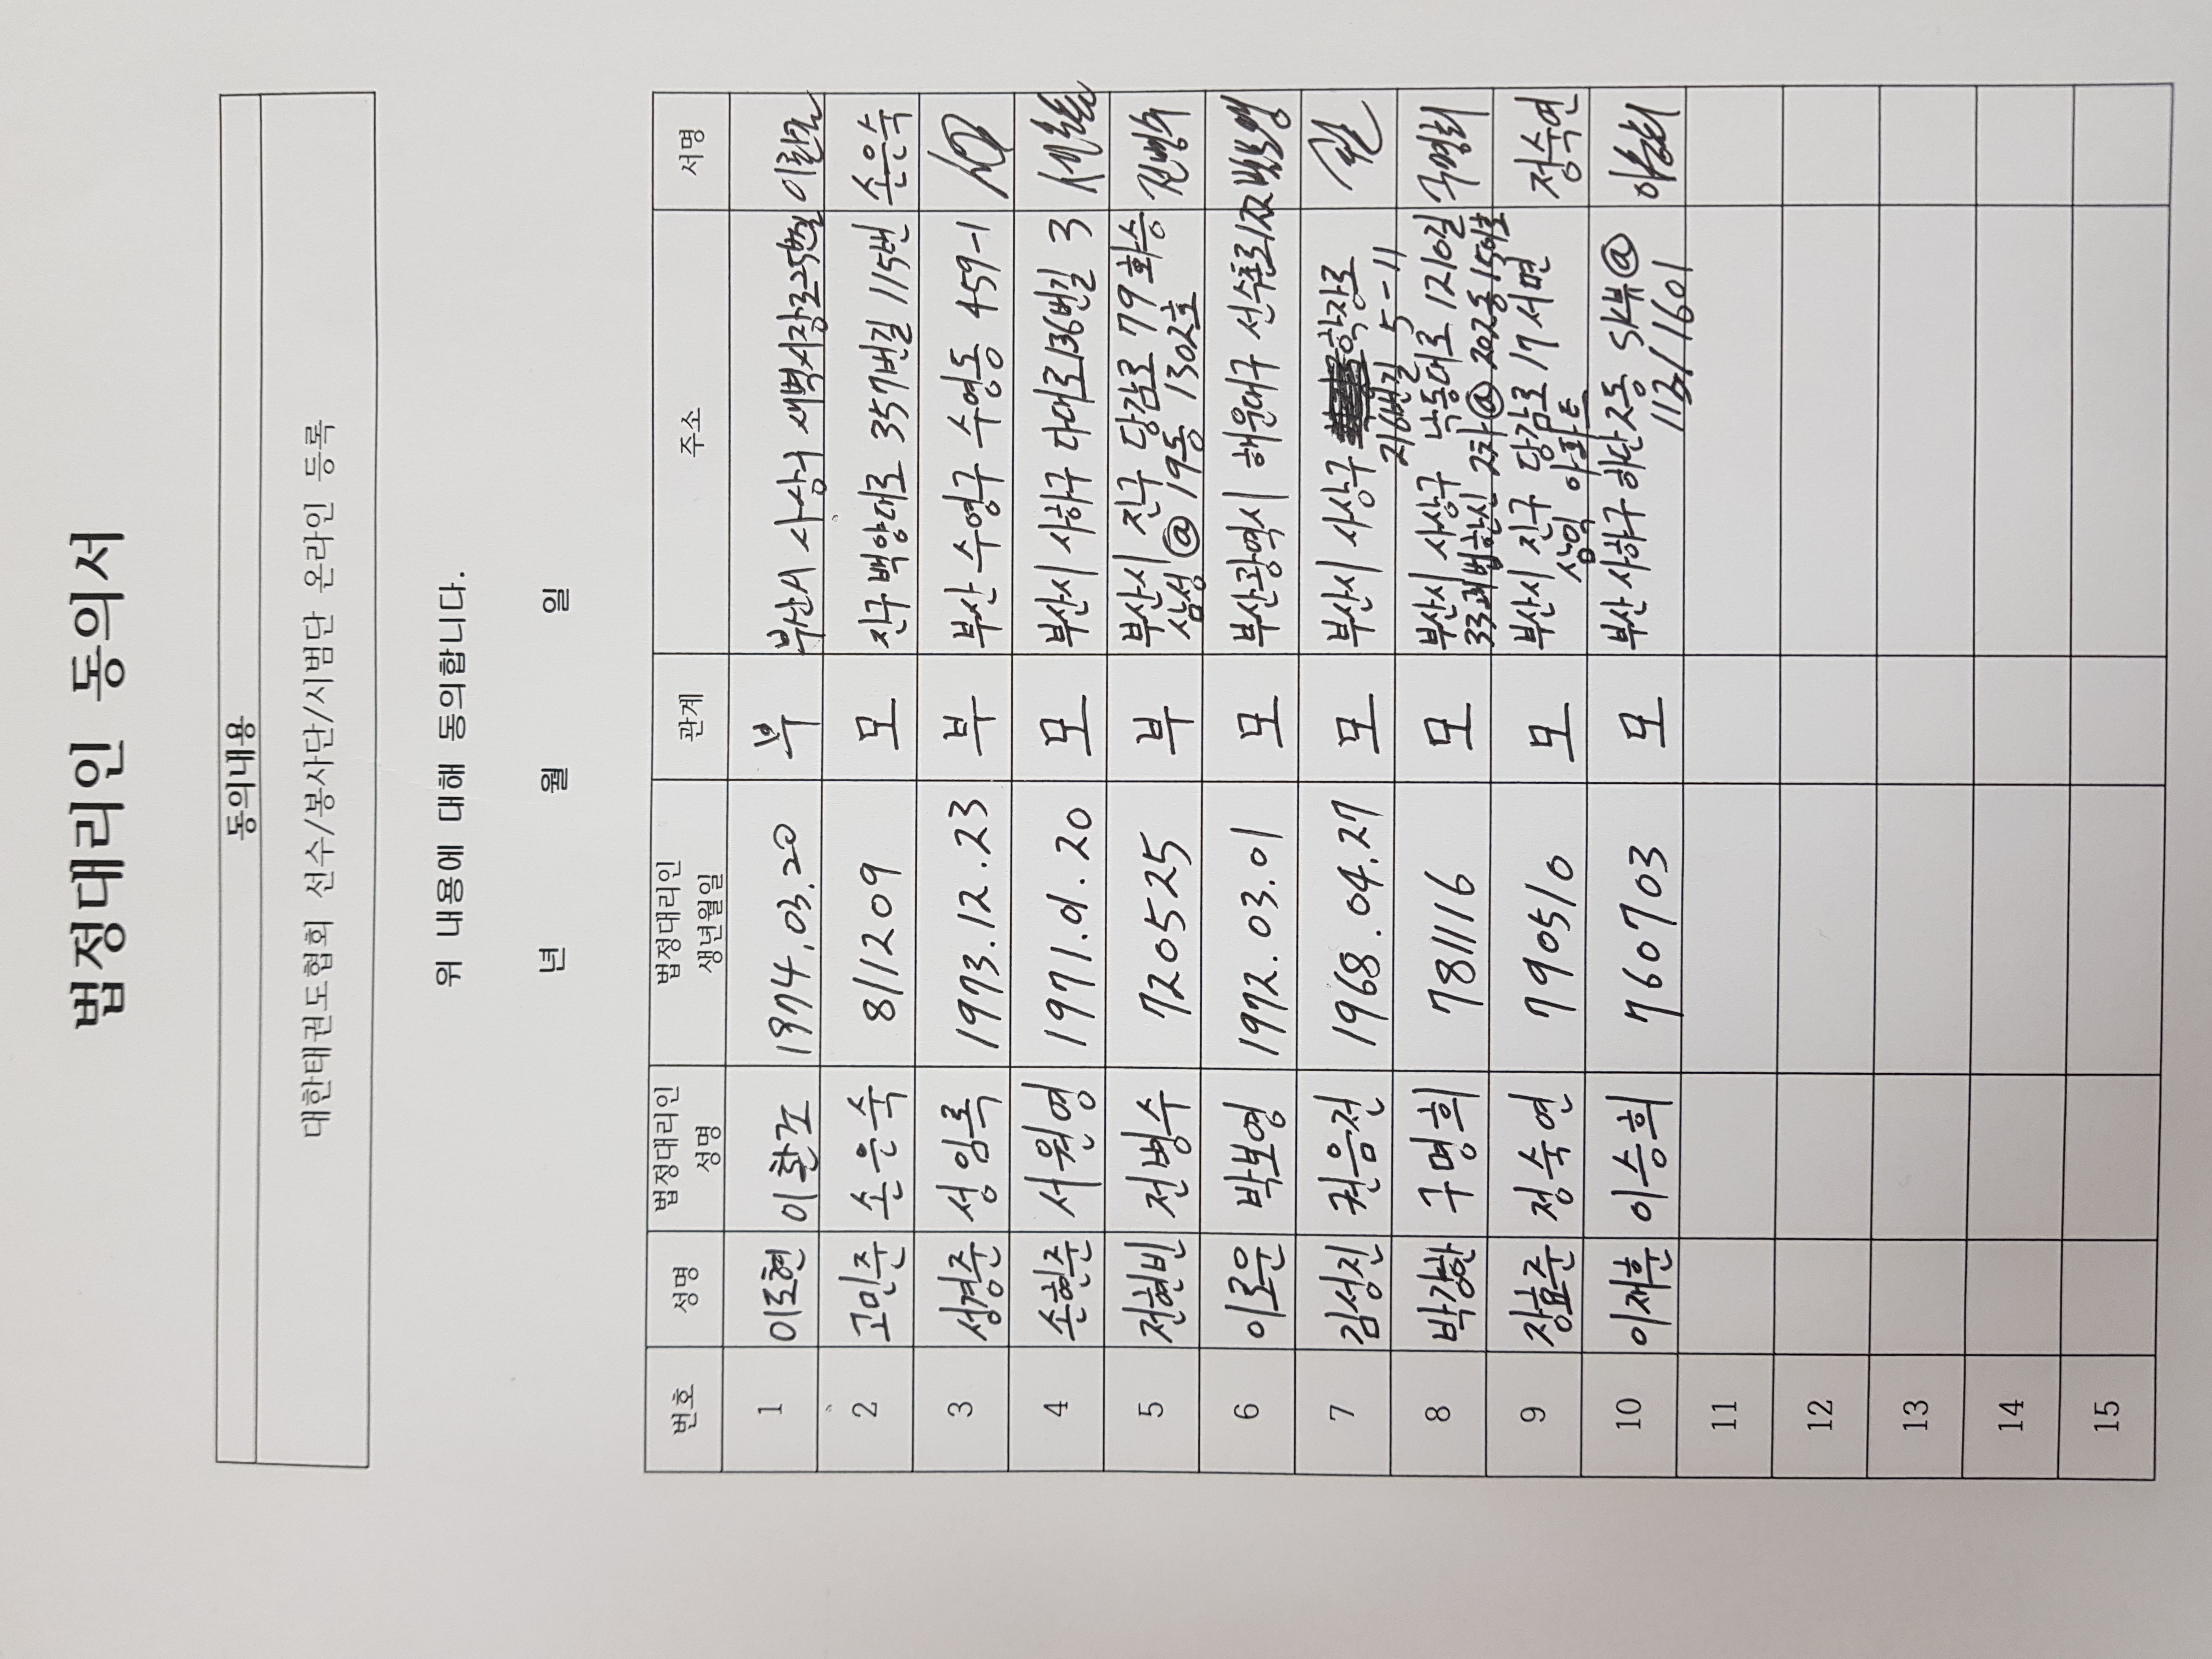 법정대리인 동의서
동의내용
대한태권도협회 선수/봉사단/시범단 온라인 등록
위 내용에 대해 동의합니다.
년 월 일
번호 성명 법정대리인 성명 법정대리인 생년월일 관계 주소 서명
1 이로현 이환조 1974.03.20 부 부산시 사상구 새벽시장로25번길
2 고민준 손은숙 811209 모 진구 백양대로 357번길 115번 손은숙
3 성경준 성임록 1973.12.23 부 부산 수영구 수영동 459-1
4 손현준 서원영 1971.01.20 모 부산시 사하구 다대로136번길 3
5 전현빈 전병수 720525 부 부산시 진구 당감로 79 화승
삼성@ 19동 1302호 전병수
6 이로운 박보영 1972.03.01 모 부산광역시 해운대구 선수촌로 박보영
7 김성진 권음전 1968.04.27 모 부산시 사상구 학장로
216번길 5-11
8 박강한 구명희 781116 모 부산시 사상구 낙동대로 1210길
33 괘법한신 2차@ 202동 1501호 구명희
9 장효준 정숙연 790510 모 부산시 진구 당감로 17 서면
삼익 아파트 정숙연
10 이재훈 이승희 760703 모 부산 사하구 하단2동 SK뷰@
112/1601 이승희
11
12
13
14
15